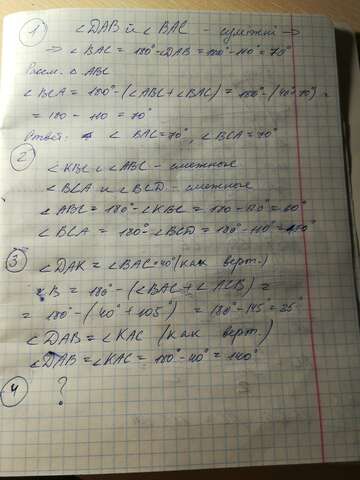 1 ∠DAB и ∠BAC - сумжні ⇒
⇒ ∠BAC = 180°-DAB = 180°-110° = 70°
Рассм. △ ABC
∠BCA = 180°-(∠ABC+∠BAC) = 180°-(40°+70°) =
= 180 - 110 = 70°
Ответ. ∠ BAC=70°, ∠BCA=70°
2
∠KBC и ∠ABC - смежные
∠BCA и ∠BCD - смежные
∠ABC = 180°-∠KBC = 180-120°=60°
∠BCA = 180°-∠BCD = 180°-110°=
3 ∠DAK = ∠BAC=40° (как верт.)
∠B = 180° - (∠BAC + ∠ACB) =
= 180° - (40° + 105°) = 180°-145°=35°
∠DAB = ∠KAC (как верт.)
∠DAB = ∠KAC = 180°-40° = 140°
4 ?